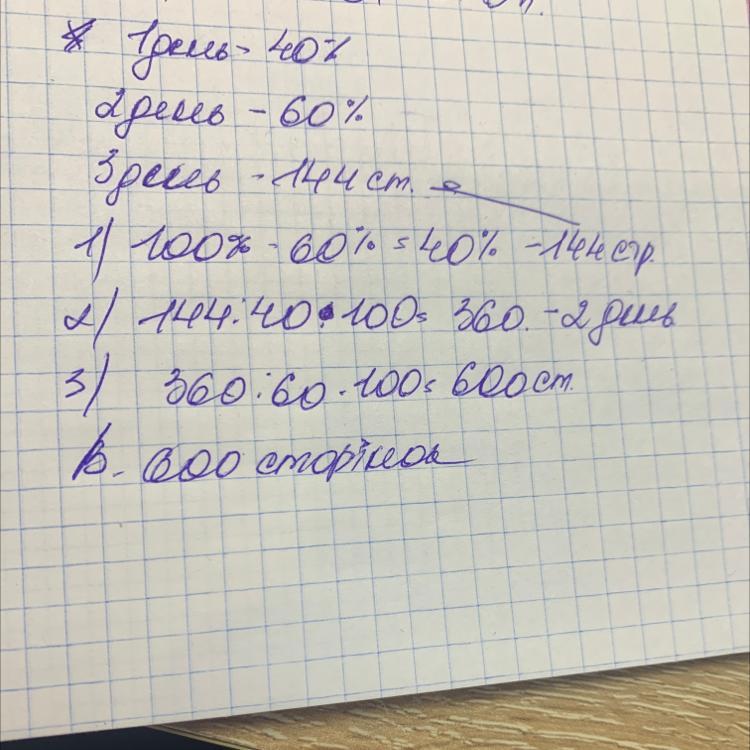 * 1день - 40%
2день - 60%
3день - 144 ст.
1) 100% - 60% = 40% - 144 стр.
2) 144:40•100= 360. - 2 день
3) 360:60·100= 600 ст.
В. 600 сторінок